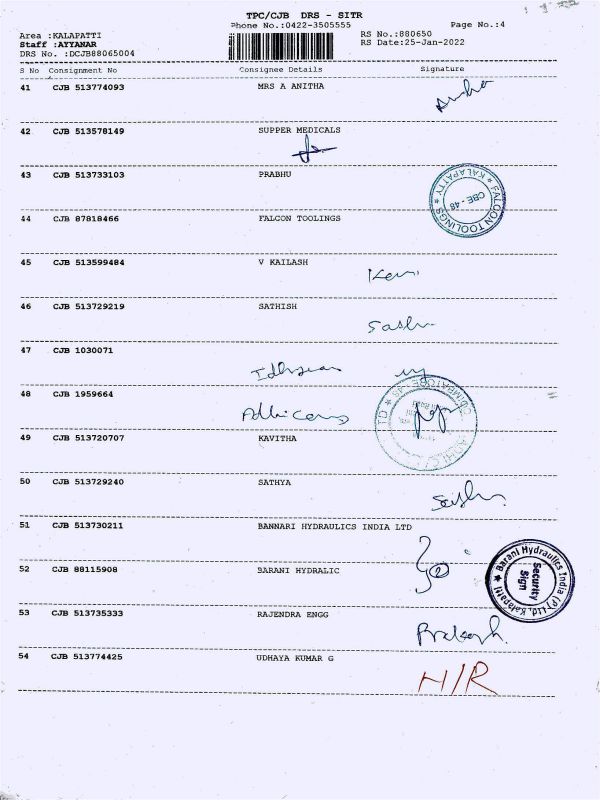 TPC/CJB DRS - SITR
Phone No.:0422-3505555
Page No.:4
Area :KALAPATTI
Staff :AYYANAR
DRS No. :DCJB88065004
RS No.:880650
RS Date:25-Jan-2022
S No Consignment No Consignee Details Signature
41 CJB 513774093 MRS A ANITHA
42 CJB 513578149 SUPPER MEDICALS
43 CJB 513733103 PRABHU
FALCON TOOLINGS ★ KALAPATTY ★
CBE - 48
44 CJB 87818466 FALCON TOOLINGS
45 CJB 513599484 V KAILASH
46 CJB 513729219 SATHISH
47 CJB 1030071
48 CJB 1959664
49 CJB 513720707 KAVITHA
50 CJB 513729240 SATHYA
51 CJB 513730211 BANNARI HYDRAULICS INDIA LTD
52 CJB 88115908 BARANI HYDRALIC
Barani Hydraulics India (P) Ltd, Kalapatti ★
Security
Sign
53 CJB 513735333 RAJENDRA ENGG
Prakash.
54 CJB 513774425 UDHAYA KUMAR G
H/R